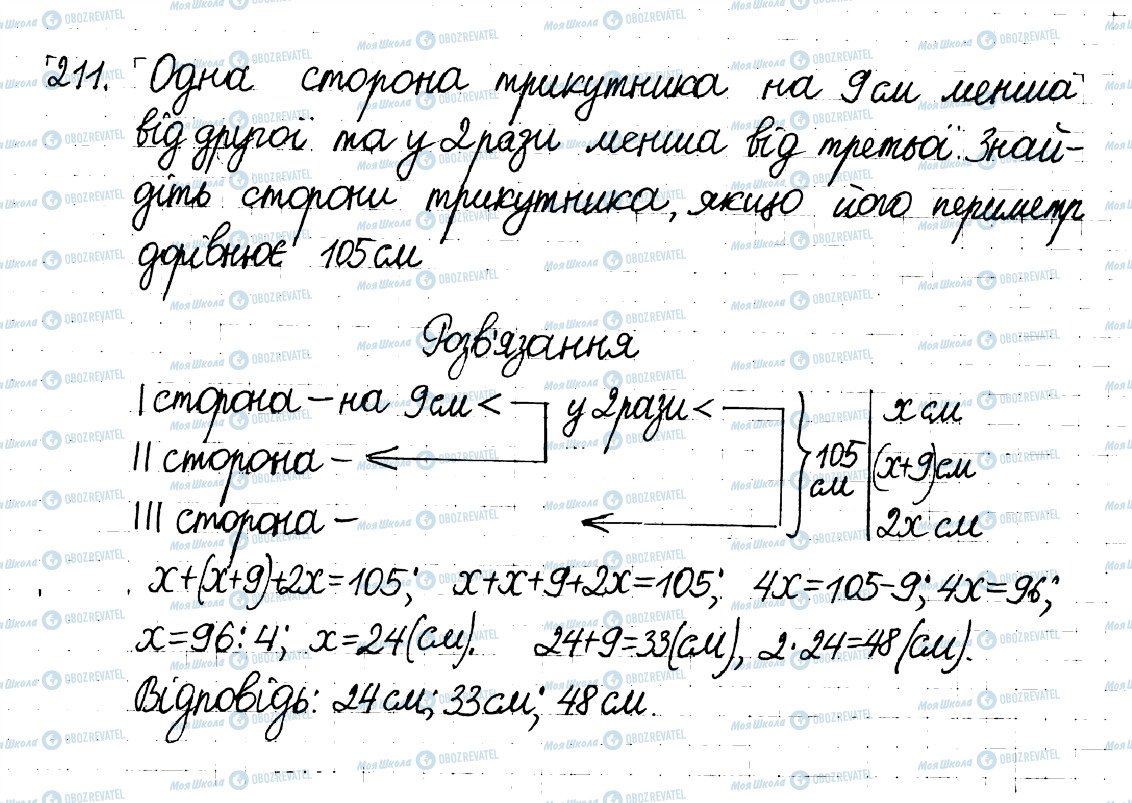 211. Одна сторона трикутника на 9 см менша
від другої та у 2 рази менша від третьої. Знай-
діть сторони трикутника, якщо його периметр
дорівнює 105 см
Розв'язання
I сторона – на 9 см < у 2 рази < х см
II сторона – 105 см (х+9) см
III сторона – 2х см
х+(х+9)+2х=105; х+х+9+2х=105; 4х=105-9; 4х=96;
х=96:4; х=24(см). 24+9=33(см), 2·24=48(см).
Відповідь: 24 см; 33 см; 48 см.
Моя Школа OBOZREVATEL